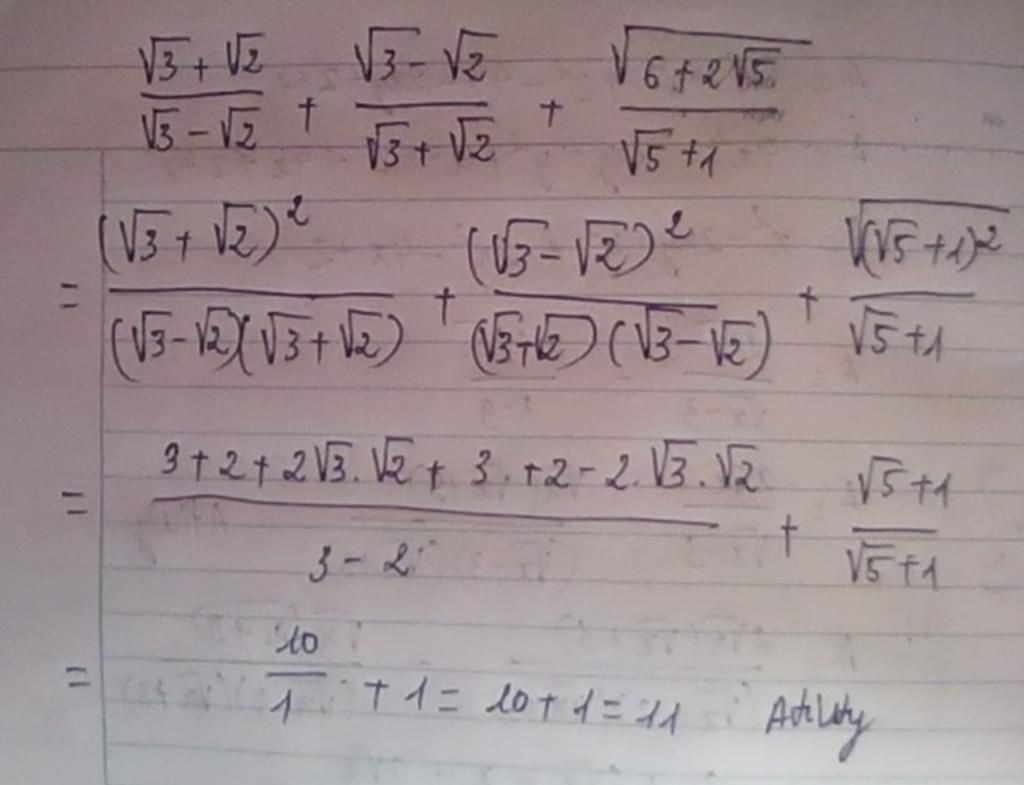 (√3 + √2)/(√3 - √2) + (√3 - √2)/(√3 + √2) + √(6 + 2√5)/(√5 + 1)
= (√3 + √2)²/((√3 - √2)(√3 + √2)) + (√3 - √2)²/((√3 + √2)(√3 - √2)) + √((√5 + 1)²)/(√5 + 1)
= (3 + 2 + 2√3.√2 + 3. + 2 - 2.√3.√2)/(3 - 2) + (√5 + 1)/(√5 + 1)
= 10/1 + 1 = 10 + 1 = 11